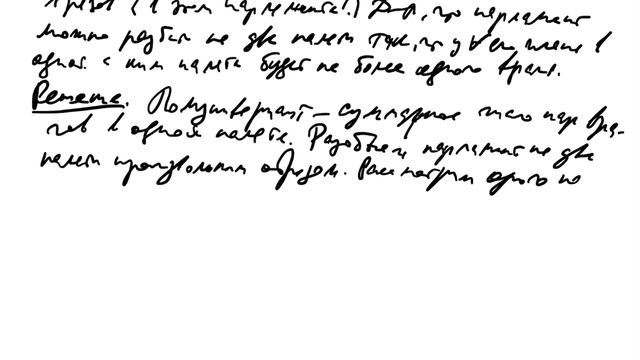 3 врагов (в этом парламенте!) Док, что парламент
можно разбить на две палаты так, что у ∀ его члена в
одной с ним палате будет не более одного врага.
Решение. Полуинвариант – суммарное число пар вра-
гов в одной палате. Разобьем парламент на две
палаты произвольным образом. Рассмотрим одного из